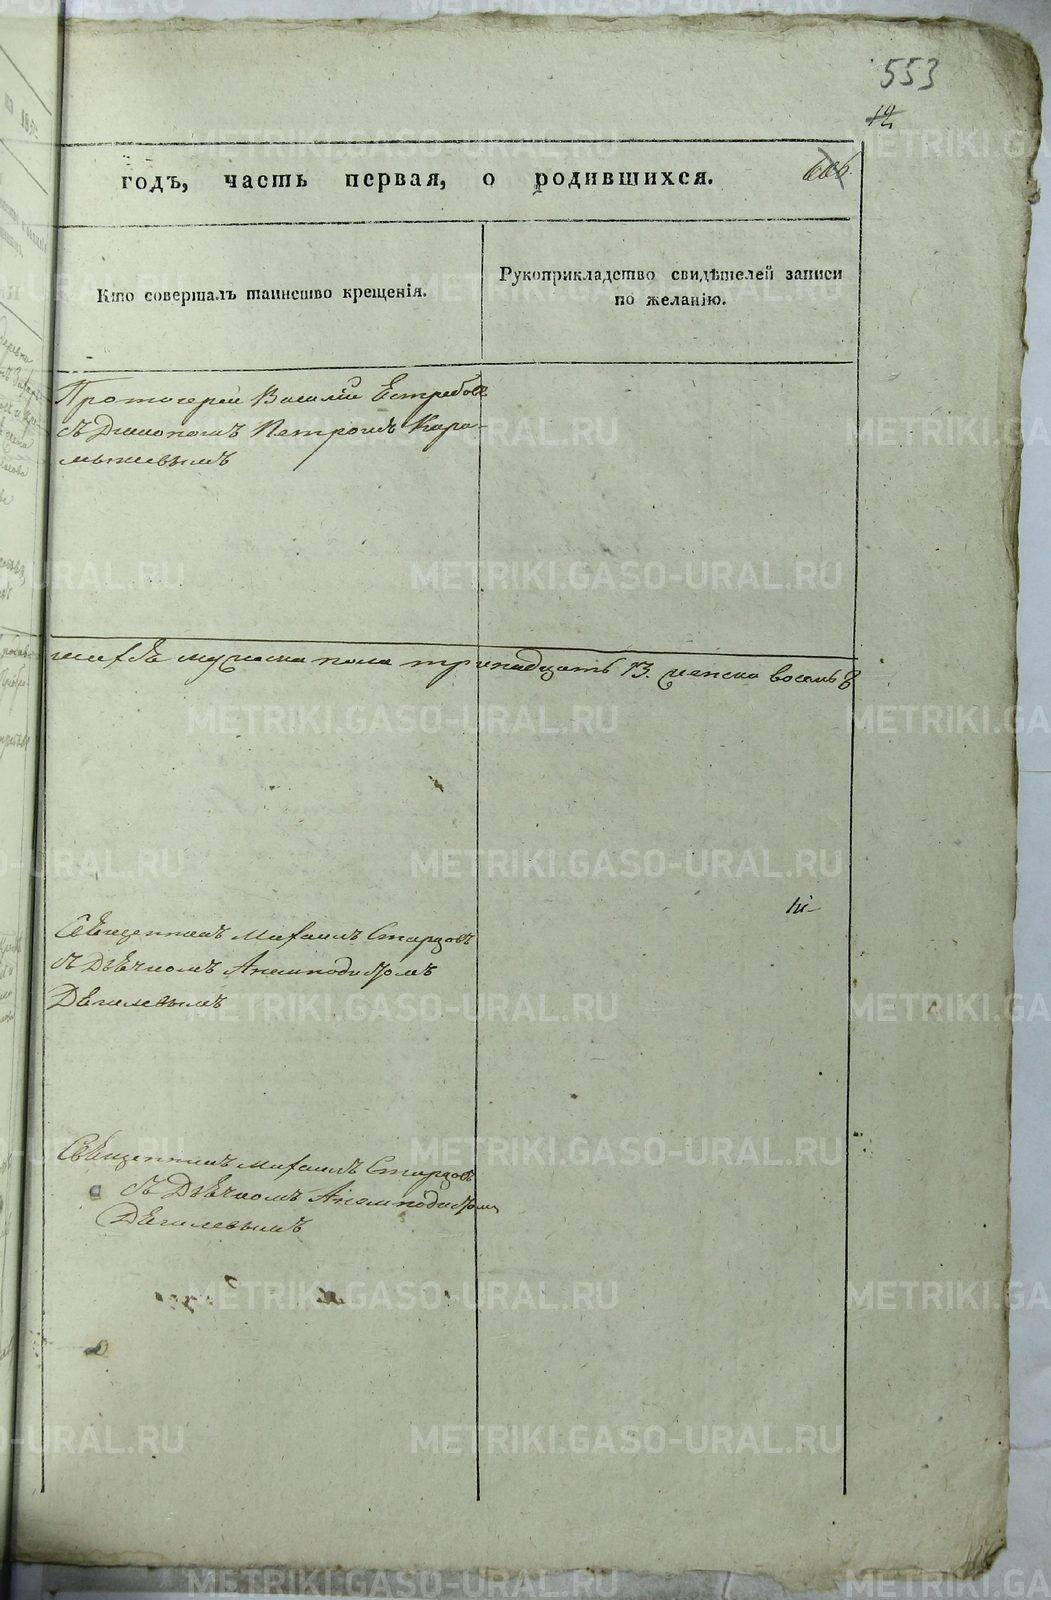 553
12
606
годъ, часть первая, о родившихся.
Кто совершалъ таинство крещенія.
Рукоприкладство свидѣтелей записи
по желанію.
Протоіерей Василій Естребовъ
съ Діакономъ Петромъ Кара-
мышевымъ
мужеска пола тринадцать 13. женска восемь 8
Священникъ Михаилъ Старцовъ
съ Дьячкомъ Анемподистомъ
Дягилевымъ
Священникъ Михаилъ Старцовъ
съ Дьячкомъ Анемподистомъ
Дягилевымъ
METRIKI.GASO-URAL.RU